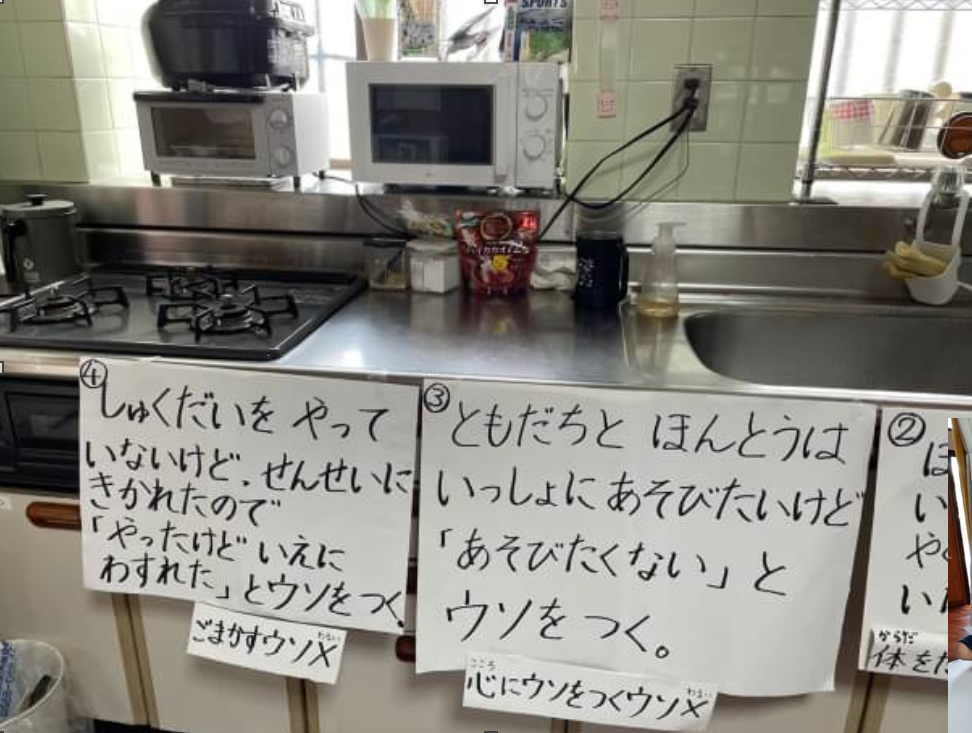 SPORTS
④
しゅくだいを やって
いないけど、せんせいに
きかれたので
「やったけど いえに
わすれた」とウソをつく。
ごまかすウソ
わるい
×
③
ともだちと ほんとうは
いっしょに あそびたいけど
「あそびたくない」と
ウソを つく。
こころ
心にウソをつくウソ
わるい
×
②
ほ
い
や
い
からだ
体を